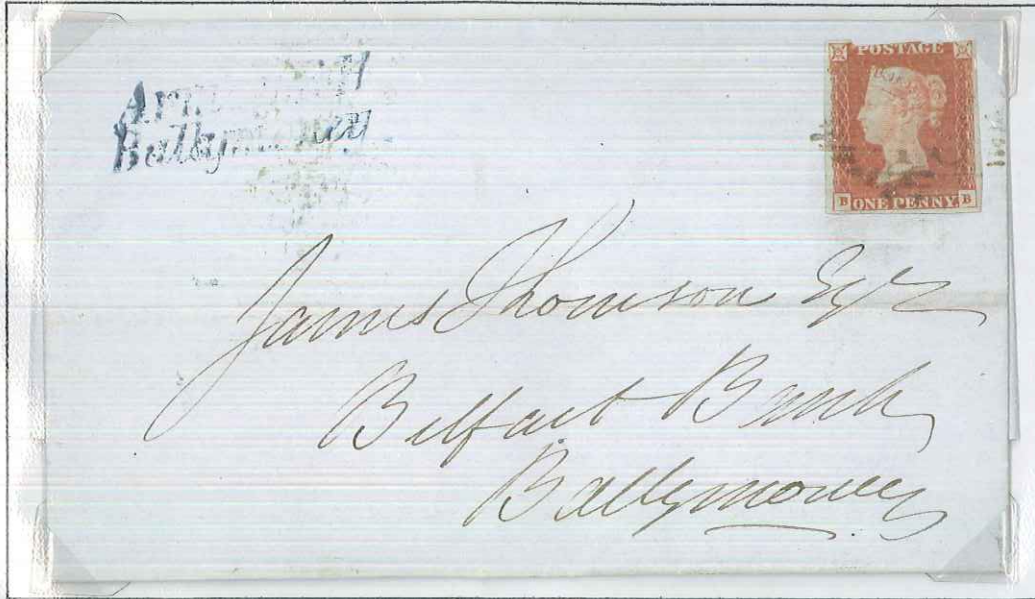 Ballymoney
POSTAGE
B ONE PENNY. B
James Thomson Esqr
Belfast Bank
Ballymoney